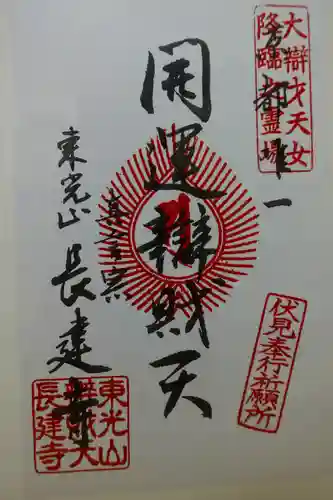 大辯才天女
降臨霊場
京都唯一
開運辯財天
真言宗
東光山長建寺
伏見奉行祈願所
東光山
辯財天
長建寺